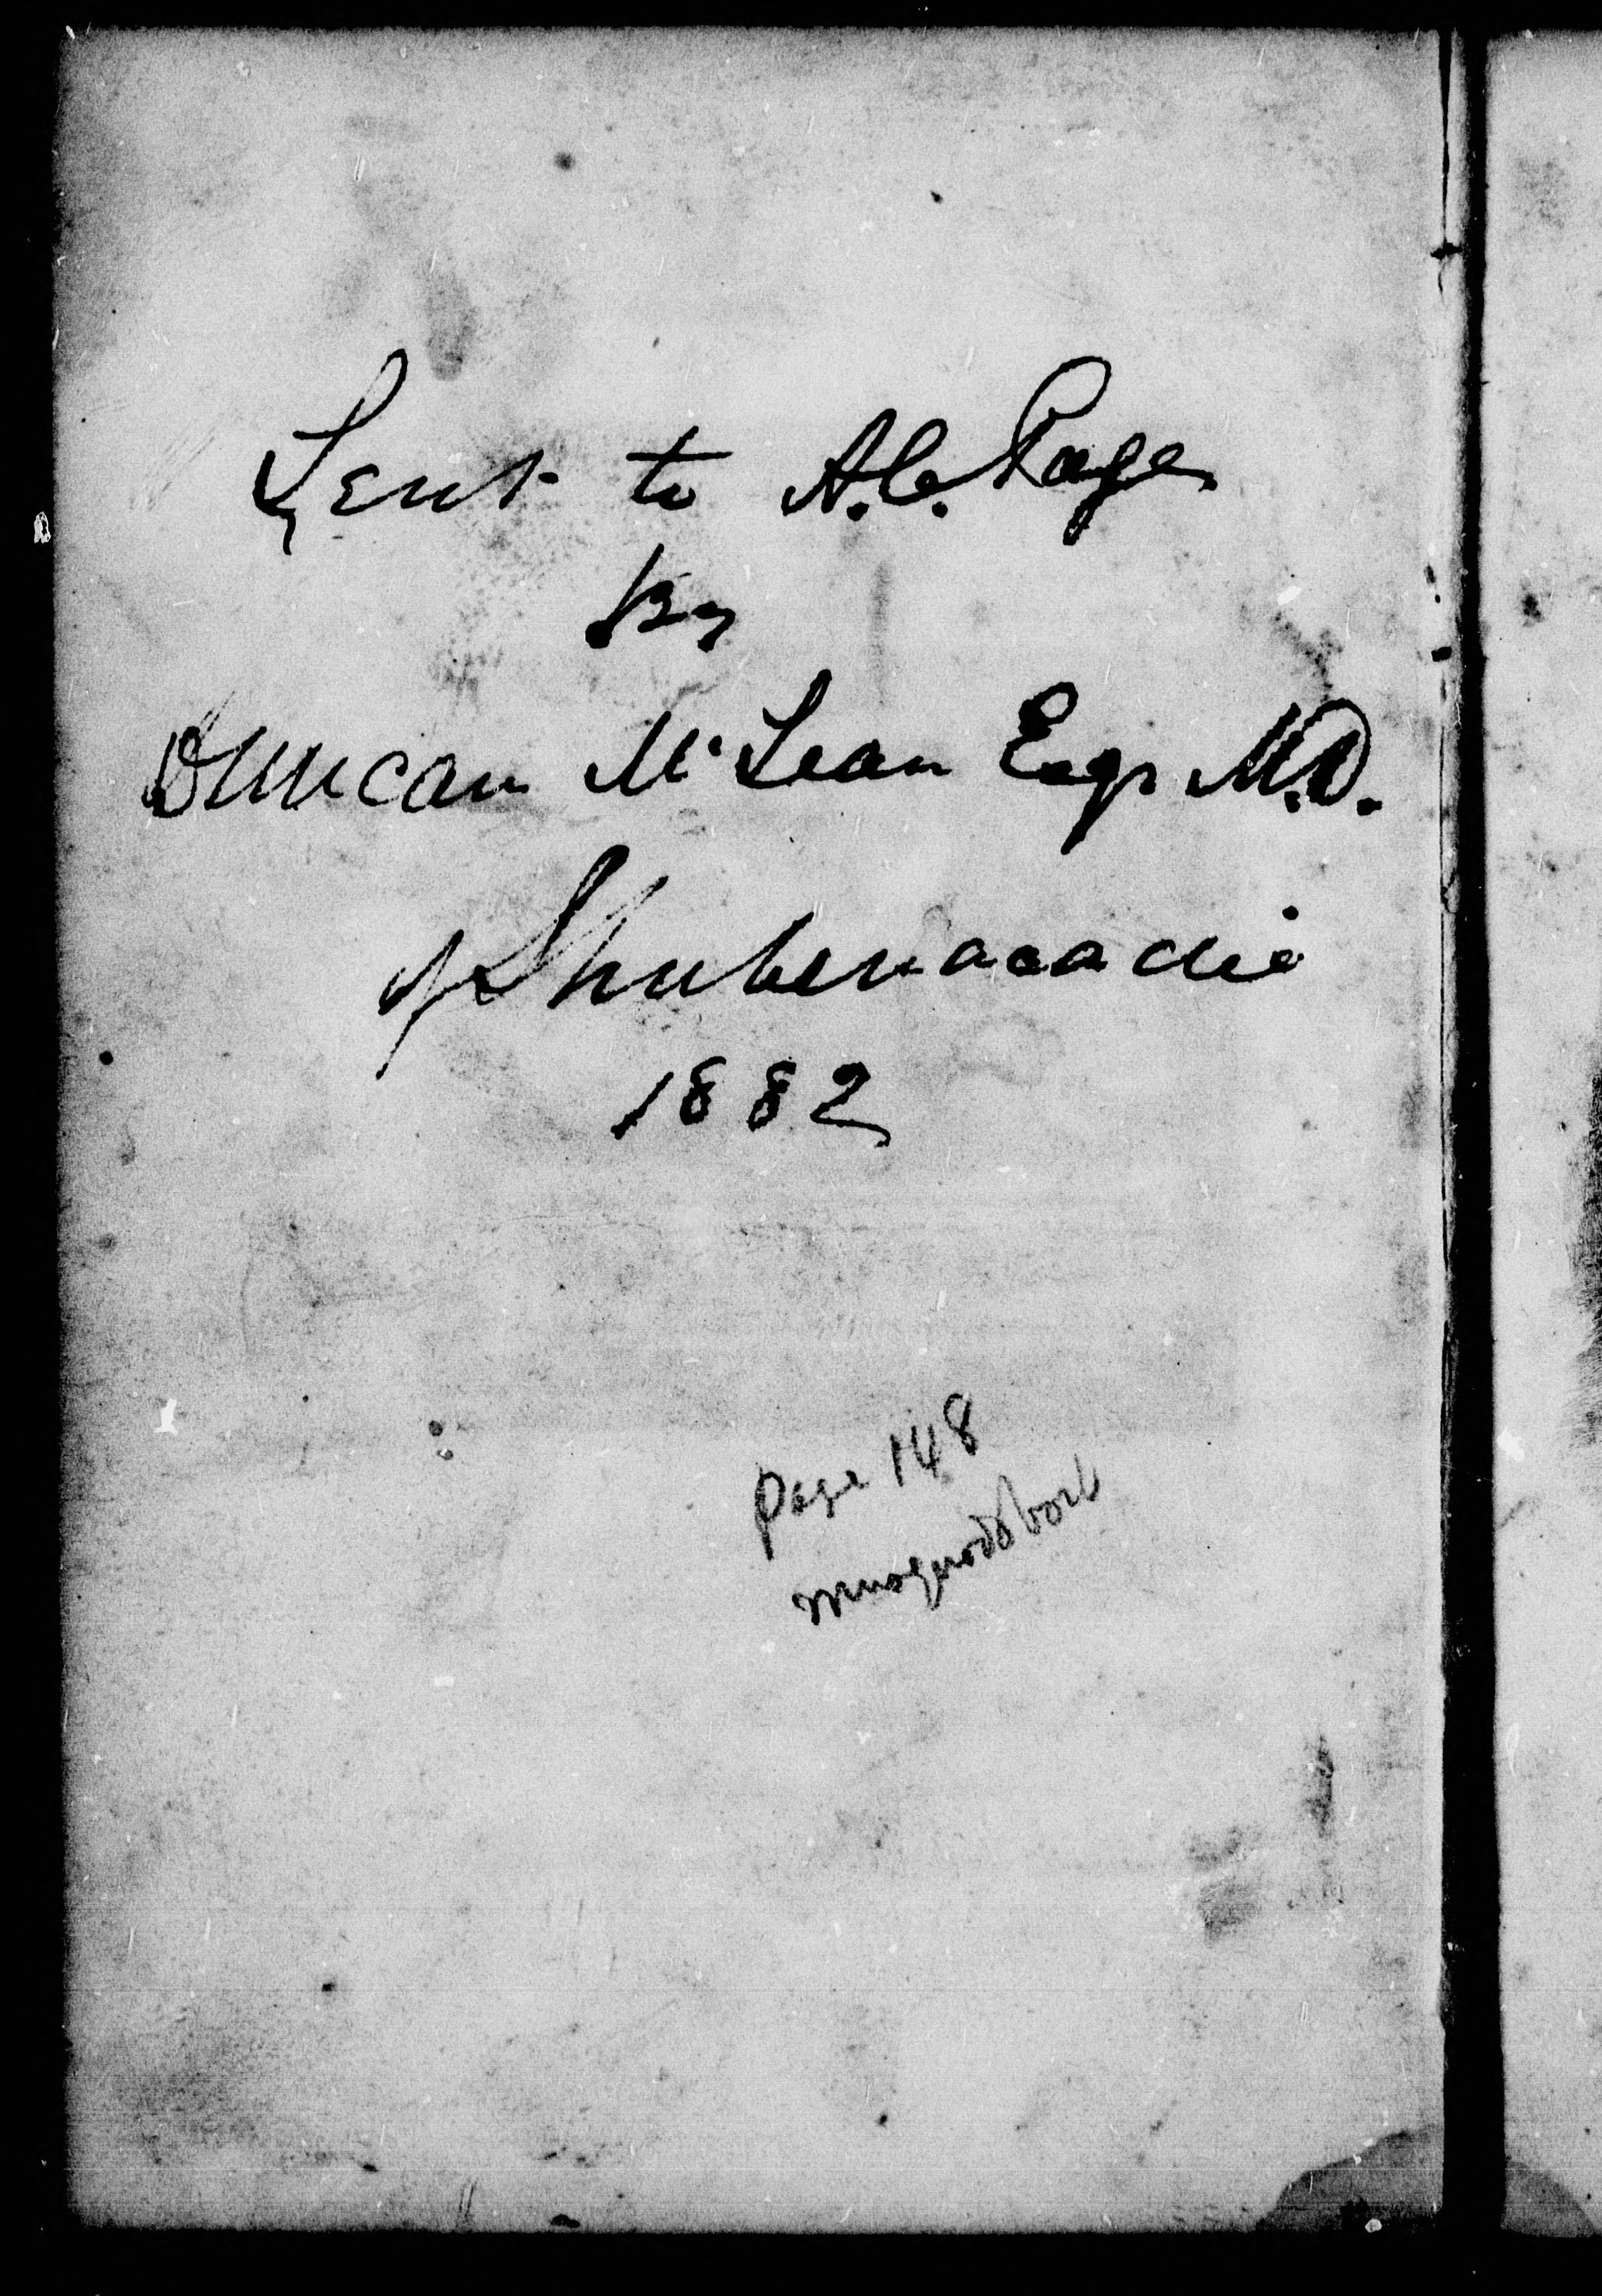 Sent to A.C. Page
By
Duncan McLean Esqr M.D.
of Shubenacadie
1882
page 148
musquodoboit